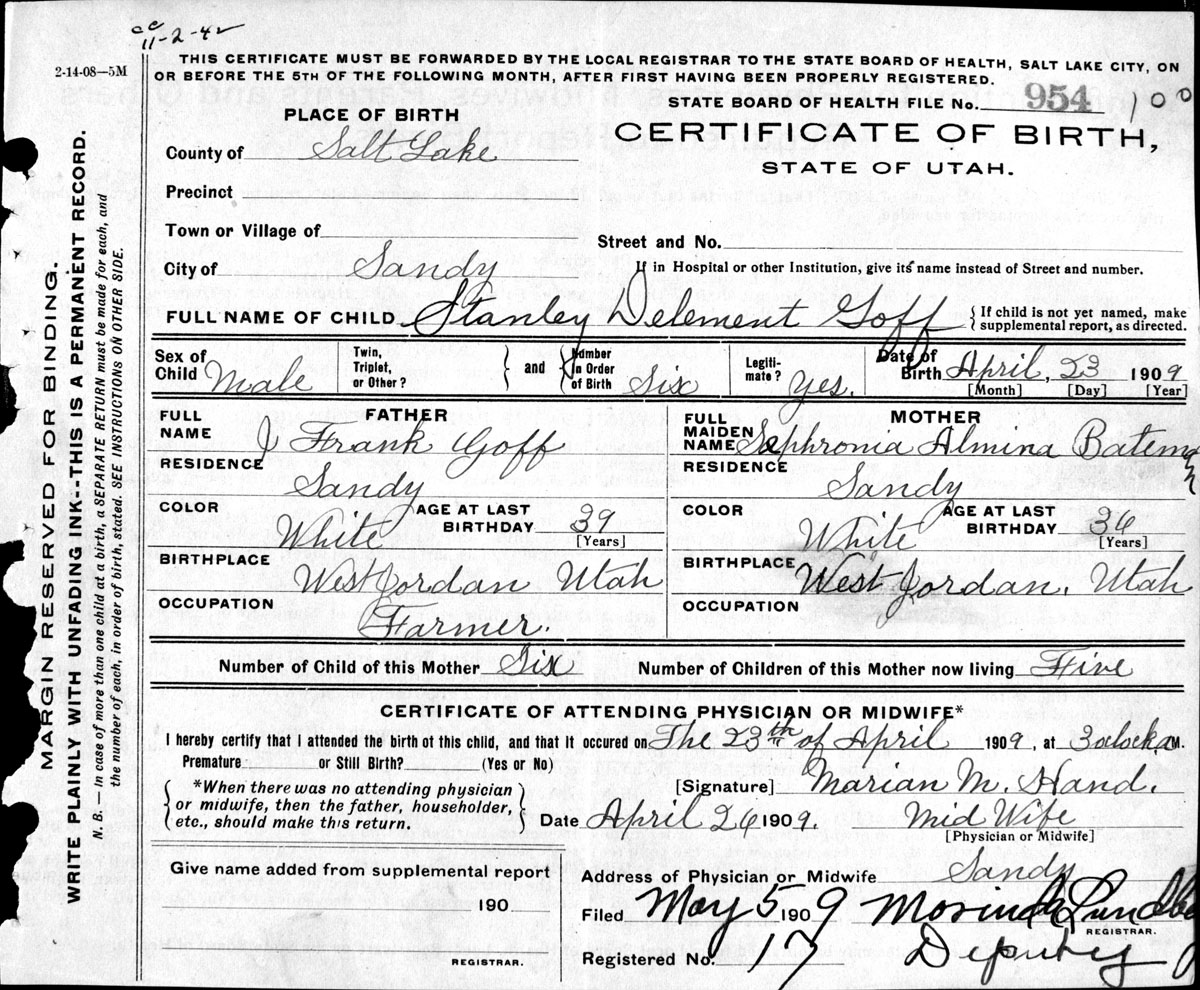 cc
11-2-42
2-14-08—5M
THIS CERTIFICATE MUST BE FORWARDED BY THE LOCAL REGISTRAR TO THE STATE BOARD OF HEALTH, SALT LAKE CITY, ON
OR BEFORE THE 5TH OF THE FOLLOWING MONTH, AFTER FIRST HAVING BEEN PROPERLY REGISTERED.
STATE BOARD OF HEALTH FILE No. 954 100
PLACE OF BIRTH
CERTIFICATE OF BIRTH,
STATE OF UTAH.
County of Salt Lake
Precinct
Town or Village of
Street and No.
City of Sandy
If in Hospital or other Institution, give its name instead of Street and number.
FULL NAME OF CHILD Stanley Delement Goff
{ If child is not yet named, make
supplemental report, as directed.
Sex of
Child Male
Twin,
Triplet,
or Other?
} and {
Number
in Order
of Birth Six
Legiti-
mate? Yes.
Date of
Birth April, 23 1909
[Month] [Day] [Year]
FATHER
FULL
NAME J Frank Goff
RESIDENCE
Sandy
COLOR
White
AGE AT LAST
BIRTHDAY 39
[Years]
BIRTHPLACE
West Jordan Utah
OCCUPATION
Farmer.
MOTHER
FULL
MAIDEN
NAME Sophronia Almina Bateman
RESIDENCE
Sandy
COLOR
White
AGE AT LAST
BIRTHDAY 36
[Years]
BIRTHPLACE
West Jordan, Utah
OCCUPATION
Number of Child of this Mother Six
Number of Children of this Mother now living Five
CERTIFICATE OF ATTENDING PHYSICIAN OR MIDWIFE*
I hereby certify that I attended the birth of this child, and that it occured on The 23th of April 1909, at 3 oclock a M.
Premature or Still Birth? (Yes or No)
{ *When there was no attending physician
or midwife, then the father, householder,
etc., should make this return. }
[Signature] Marian M. Hand.
Date April 26 1909.
Mid Wife
[Physician or Midwife]
Give name added from supplemental report
190
REGISTRAR.
Address of Physician or Midwife Sandy
Filed May 5 1909
REGISTRAR.
Registered No. 17 Deputy
MARGIN RESERVED FOR BINDING.
WRITE PLAINLY WITH UNFADING INK--THIS IS A PERMANENT RECORD.
N. B.— In case of more than one child at a birth, a SEPARATE RETURN must be made for each, and
the number of each, in order of birth, stated. SEE INSTRUCTIONS ON OTHER SIDE.